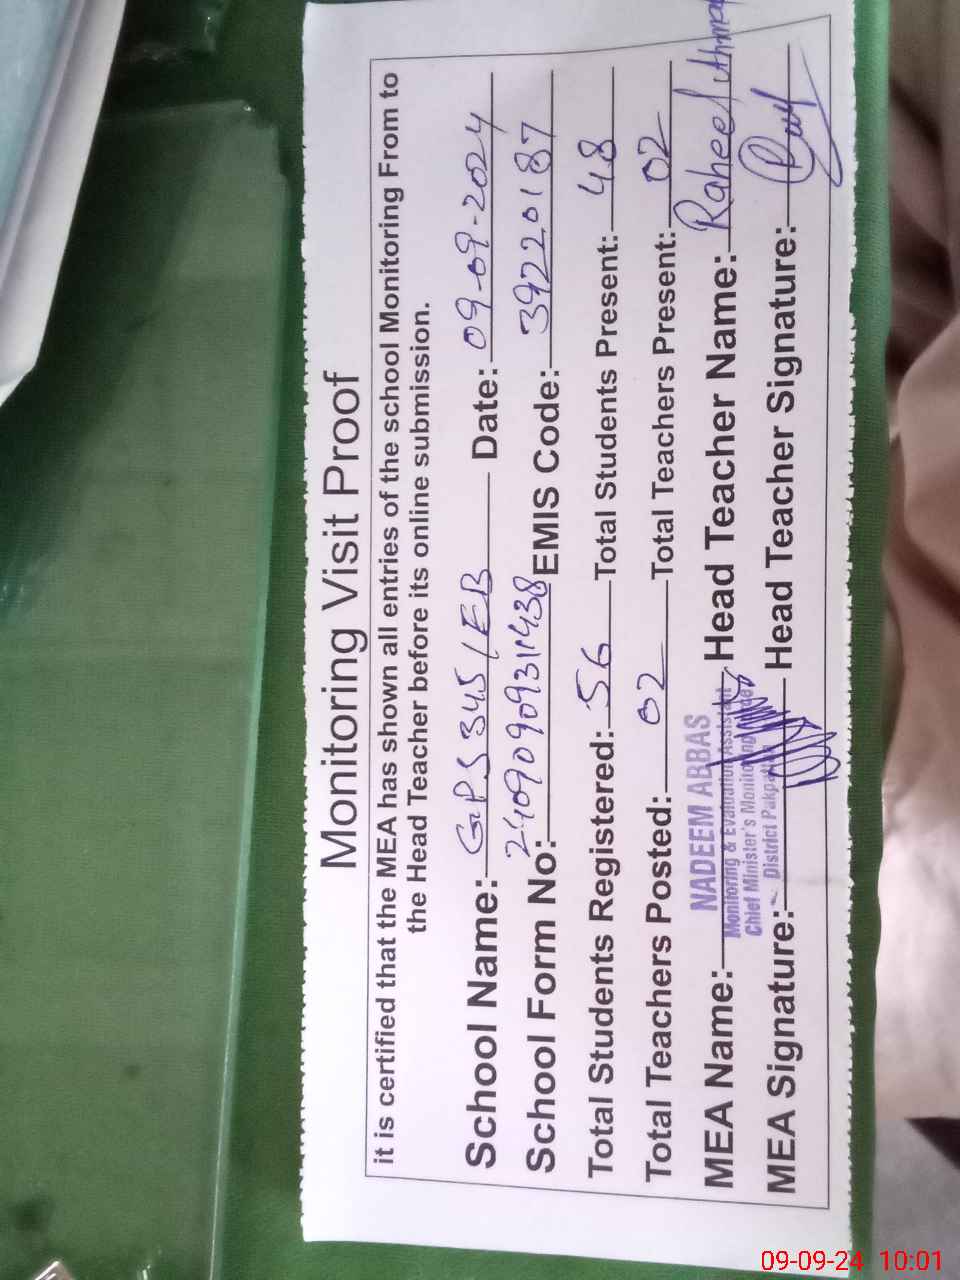 Monitoring Visit Proof
it is certified that the MEA has shown all entries of the school Monitoring From to
the Head Teacher before its online submission.
School Name: GPS 345/EB Date: 09-09-2024
School Form No: EMIS Code: 39220187
Total Students Registered: 56 Total Students Present: 48
Total Teachers Posted: 02 Total Teachers Present: 02
MEA Name: NADEEM ABBAS Head Teacher Name: Raheel Ahmad
Monitoring & Evaluation Assistant
Chief Minister's Monitoring
District Pakpattan
MEA Signature: Head Teacher Signature:
09-09-24 10:01